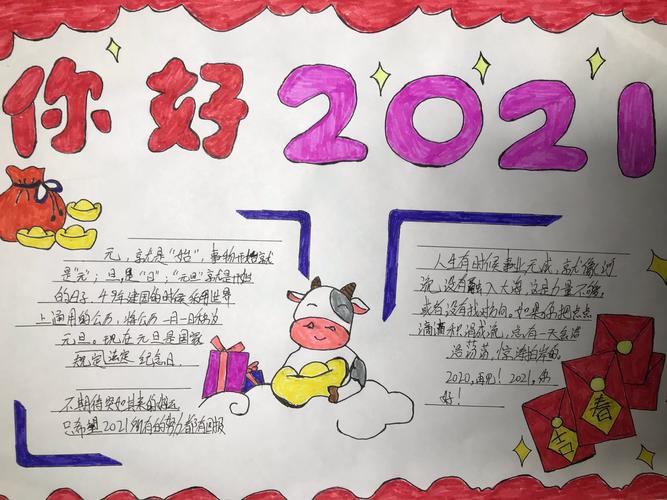 你好2021
元，就是"始"，事物开始就
是"元"；旦，是"日"；"元旦"就是开始
的日子。49年建国的时候采用世界
上通用的公历，将公历一月一日称为
元旦。现在元旦是国家
规定法定纪念日。
不期待突如其来的好运
只希望2021所有的努力都有回报
人生有时候事业无成，就像河
流，没有融入大海，这是力量不够，
或者没有找对方向。如果你把点点
滴滴积涓成流，总有一天会浩
浩荡荡，惊涛拍岸的。
2020，再见！2021，你
好！
吉
春